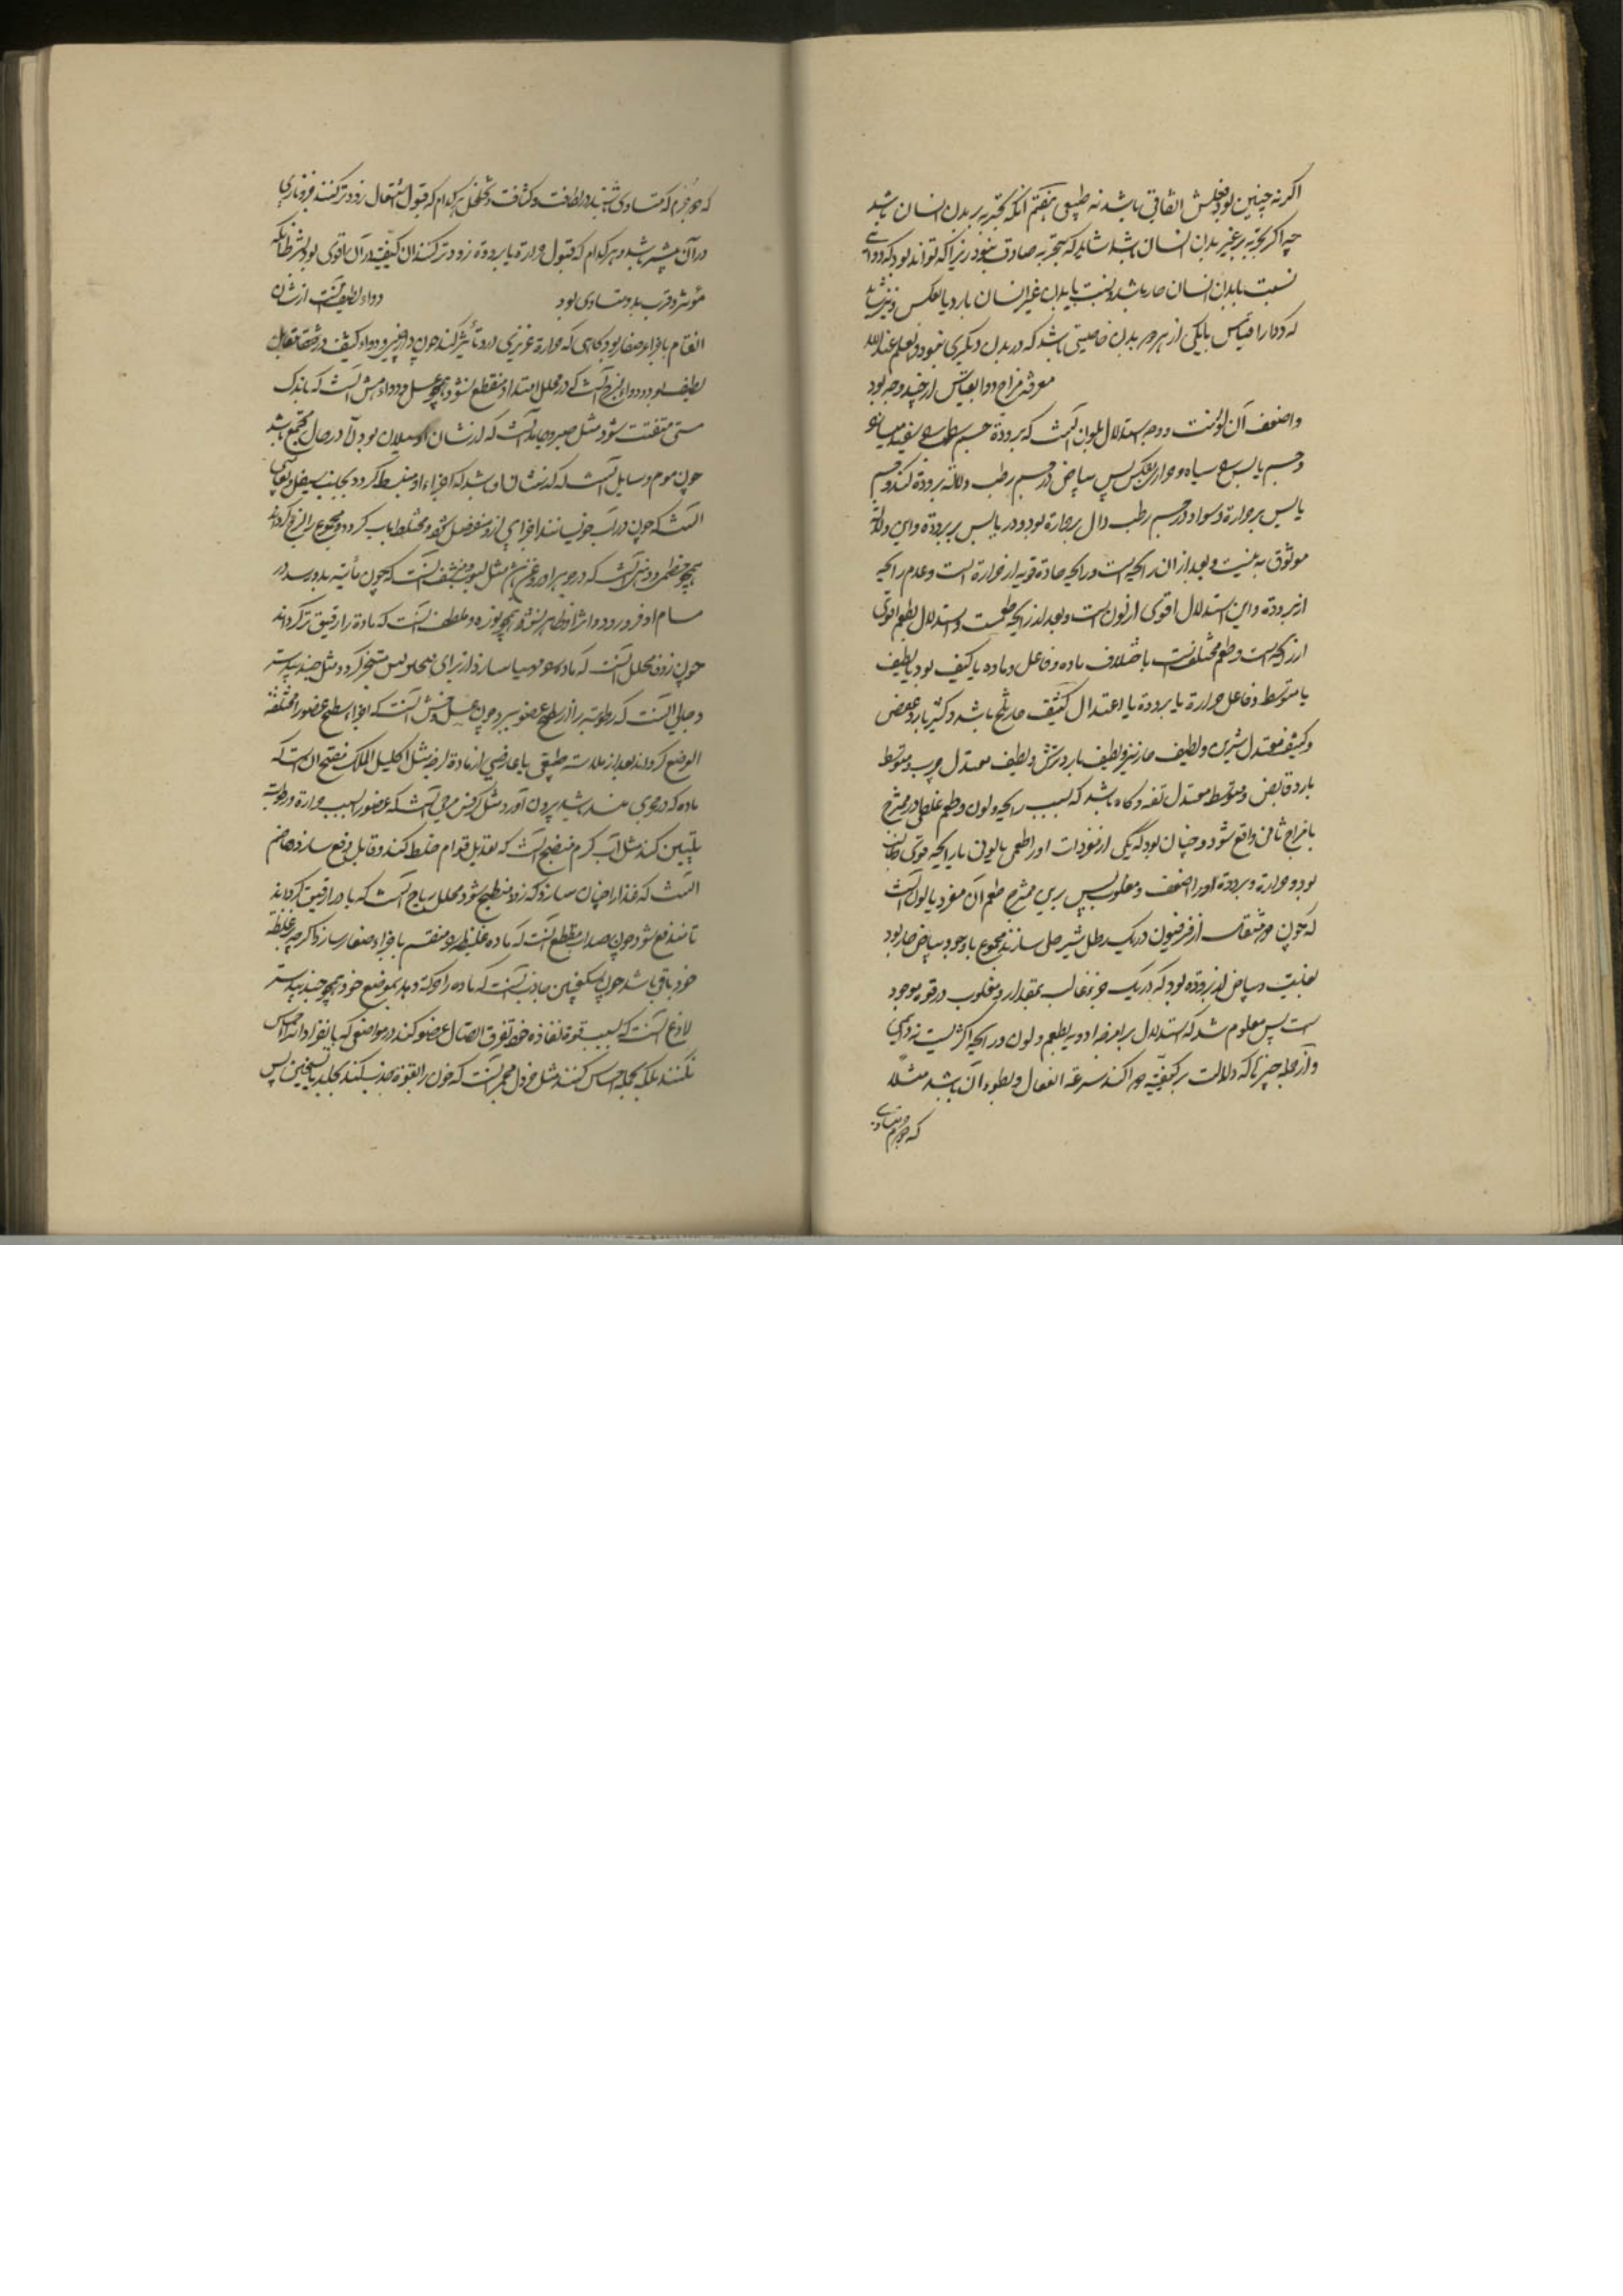 اگر نه چنین بود فعلش اتفاقی باشد نه طبیعی هفتم آنکه تجربه بر بدن انسان باشد
چه اگر تجربه بر غیر بدن انسان باشد شاید که تجربه صادق نبود زیرا که تواند بود که دوائی
نسبت با بدن انسان حار باشد و نسبت با بدن غیر انسان بارد یا بعکس و نیز شاید
که دوا را قیاس با یکی از هر دو بدن خاصیتی باشد که در بدن دیگری نبود و العلم عند الله
معرفة مزاج دوا بقیاس از چند وجه بود
واضعف آن لونست و وجه استدلال بلون آنست که برودة جسم رطب سفید
و جسم یابس سیاه و حرارة بعکس پس بیاض در جسم رطب دلالة برودة کند و در جسم
یابس بر حرارة و سواد در جسم رطب دال بر حرارة بود و در یابس بر برودة و این دلالة
موثوق به نیست و بعد از آن رایحه است و رایحه حادة قویه از حرارة است و عدم رایحه
از برودة و این استدلال اقوی از لون است و بعد از رایحه طعمست و استدلال بطعم اقوی
از رایحه است و طعم مختلفست باختلاف ماده و فاعل و ماده یا کثیف بود یا لطیف
یا متوسط و فاعل حرارة یا برودة یا اعتدال کثیف حار تلخ باشد و کثیف بارد عفص
و کثیف معتدل شیرین و لطیف حار تیز و لطیف بارد ترش و لطیف معتدل چرب و متوسط
بارد قابض و متوسط معتدل تفه و گاه باشد که بسبب رایحه و لون و طعم غلط در ممتزج
بامزاج ثانی واقع شود و چنان بود که یکی از مفردات او را طعمی یا لونی یا رایحه قوی
بود و حرارة و برودة او را ضعف و مغلوب پس برین ممتزج طعم آن مفرد یا لون
که چون دو مثقال از فرفیون در یک رطل شیر حل سازند مجموع با وجود بیاض حار بود
بغایت و بیاض از برودة بود که در یک جزو غالب بمقدار و مغلوب در قوة موجود
است پس معلوم شد که استدلال بر امزجه ادویه بطعم و لون و رایحه اکثریست نه دایمی
و از جمله چیزها که دلالت بر کیفیة دوا کند سرعة انفعال و بطوء آن باشد مثلا
که دو جرم متساوی
که دو جرم که متساوی باشند در لطافت و کثافت و تخلخل هر کدام که قبول اشتعال زودتر کنند جزو ناری
در آن بیشتر باشد و هر کدام که قبول حرارة یا برودة زودتر کند آن کیفیة در آن اقوی بود بشرط آنکه
مؤثر و قرب بدو متساوی بود دواء لطیف آنست از شان
انقسام باجزاء صغار بود گاهی که حرارة غریزی درو تأثیر کند چون دارچینی و دواء کثیف در مقابل
لطیف بود و دواء لزج آنست که در محل امتداد منقطع نشود همچو عسل و دواء هش آنست که باندک
مسی متفتت شود مثل صبر و جامد آنست که از شان او سیلان بود الا در حال مجتمع باشد
چون موم و سایل آنست که از شان او باشد که اجزاء او منبسط گردد بجانب سفل و لعابی
آنست که چون در آب خویسانند اجزای ازو منفصل شود و مختلط بآب گردد و مجموع را لزج گرداند
همچو خطمی و دهنی آنست که در جوهر او روغن باشد مثل لبوب و منشف آنست که چون مائیة بدو رسد در
مسام او فرو رود و اثر او ظاهر نشود همچو نوره و ملطف آنست که مادة را رقیق‌تر گرداند
چون زوفا محلل آنست که ماده را مهیا سازد از برای تحلل پس متبخر گردد مثل جندبیدستر
و جالی آنست که رطوبة را از سطح عضو ببرد چون عسل و مخشن آنست که اجزاء سطح عضو را مختلفة
الوضع گرداند بعد از ملاسة طبیعی یا عارضی از مادة لزجه مثل اکلیل الملک مفتح آن است که
ماده که در مجری بند شده بیرون آورد مثل کرفس مرخی آنست که عضو را بسبب حرارة و رطوبة
تلیین کند مثل آب گرم منضج آنست که تعدیل قوام خلط کند و قابل دفع سازد هاضم
آنست که غذا را چنان سازد که زود منطبخ شود محلل ریاح آنست که باد را رقیق گرداند
تا مندفع شود چون سداب مقطع آنست که ماده غلیظه را منقسم باجزاء صغار سازد اگرچه بر غلظة
خود باقی باشد چون سکنجبین جاذب آنست که ماده را حرکة دهد بموضع خود همچو جندبیدستر
لاذع آنست که بسبب قوة نفاذه خود تفرق اتصال عضو کند در مواضعی که بانفراد آنرا احساس
نکنند بلکه بجمله احساس کنند مثل خردل محمر آنست که خون را بقوة جذب کند بجلد با تسخین پس